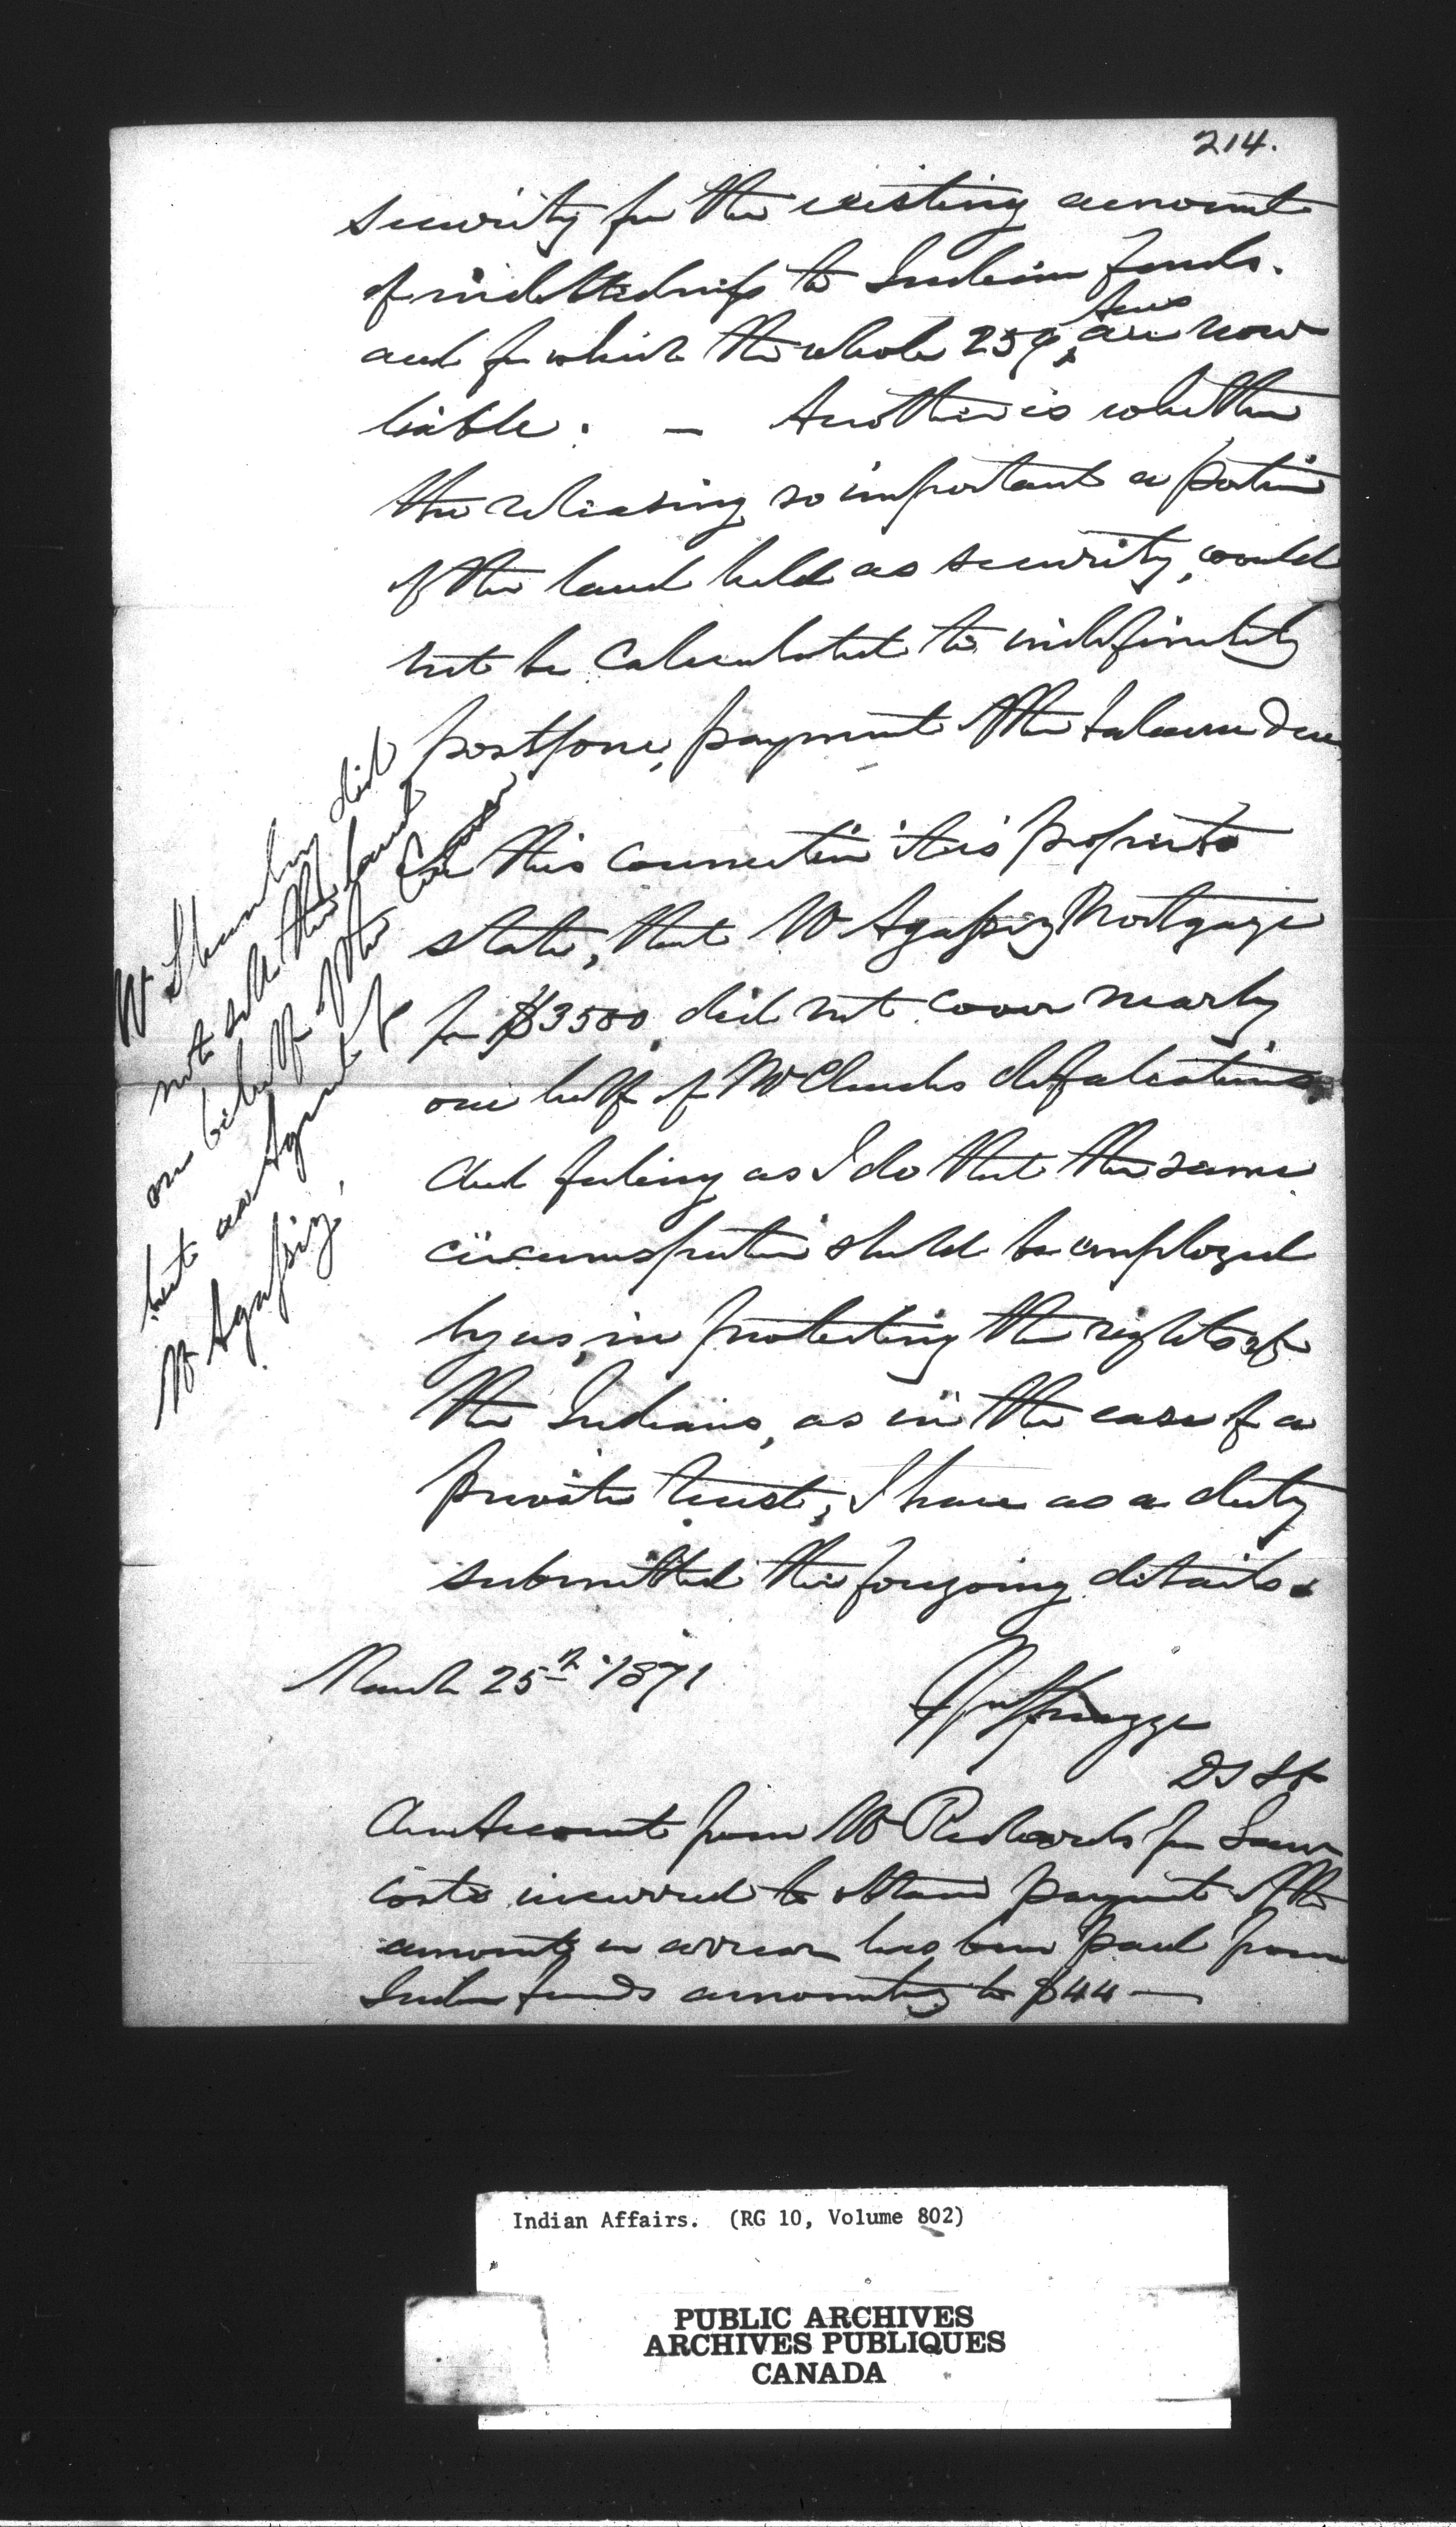 214.
security for the existing amount
of indebtedness to Indian funds.
and for which the whole 259 acres are now
liable. — Another is whether
the releasing so important a portion
of the land held as security, would
not be calculated to indefinitely
postpone, payment of the balance due
In this connection it is proper to
state, that Mr Agassiz Mortgage
for $3500, did not cover nearly
one half of Mr Clench's defalcations
And feeling as I do that the same
circumspection should be employed
by us, in protecting the rights of
the Indians, as in the case of a
private trust, I have as a duty
submitted the foregoing details.
March 25th 1871
Mr did
not sell the land
on behalf of the
but as Agent of
Mr Agassiz.
An Account from Mr Richards for Law
costs incurred to obtain payment of the
amounts in arrear has been paid from
Indian funds amounting to $44 —
Indian Affairs. (RG 10, Volume 802)
PUBLIC ARCHIVES
ARCHIVES PUBLIQUES
CANADA